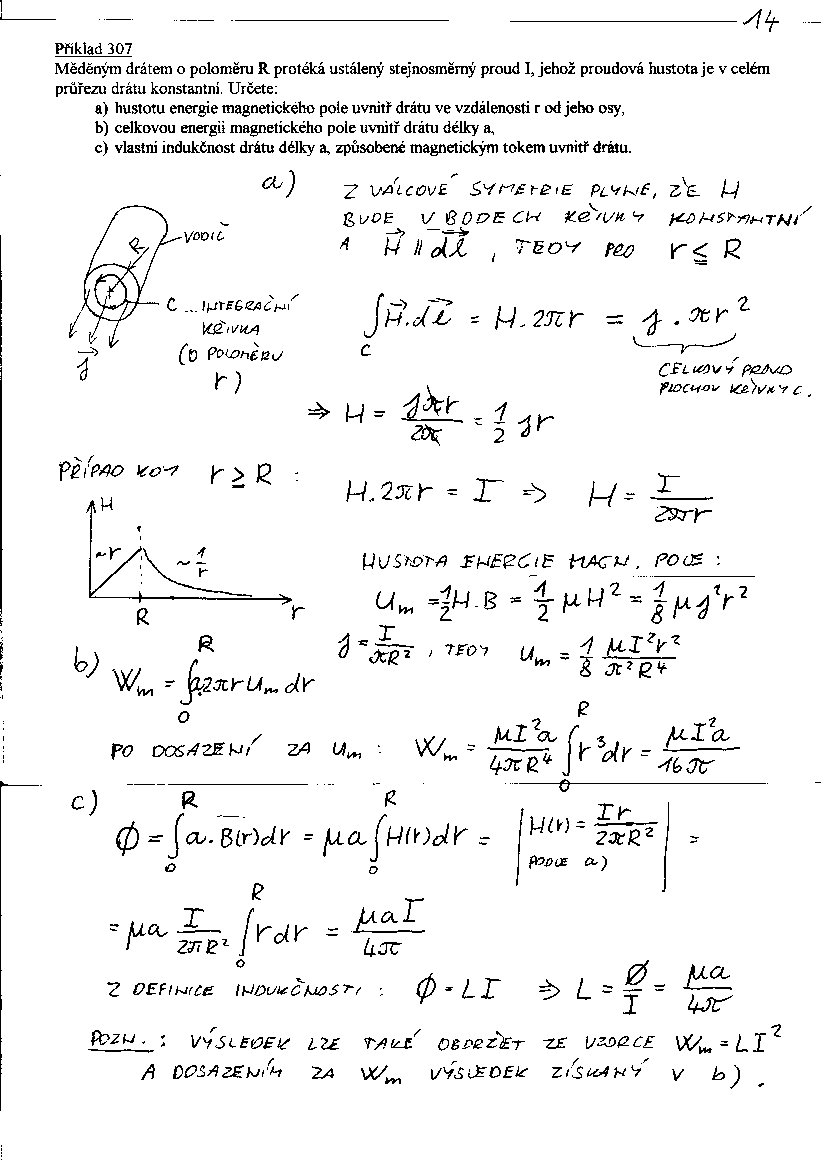 14
Příklad 307
Měděným drátem o poloměru R protéká ustálený stejnosměrný proud I, jehož proudová hustota je v celém
průřezu drátu konstantní. Určete:
a) hustotu energie magnetického pole uvnitř drátu ve vzdálenosti r od jeho osy,
b) celkovou energii magnetického pole uvnitř drátu délky a,
c) vlastní indukčnost drátu délky a, způsobené magnetickým tokem uvnitř drátu.
a) Z VÁLCOVÉ SYMETRIE PLYNE, ŽE H
BUDE V BODECH KŘIVKY KONSTANTNÍ
A H⃗ ∥ dl⃗ , TEDY PRO r ≤ R
R
VODIČ
C ... INTEGRAČNÍ
KŘIVKA
(O POLOMĚRU
r)
j⃗
∫_C H⃗.dl⃗ = H.2πr = j . πr²
CELKOVÝ PROUD
PLOCHOU KŘIVKY C.
⇒ H = jπr/2π = 1/2 jr
PŘÍPAD KDY r ≥ R :
H.2πr = I ⇒ H = I/2πr
H
~r
~ 1/r
R
r
HUSTOTA ENERGIE MAGN. POLE :
u_m = 1/2 H.B = 1/2 μH² = 1/8 μj²r²
j = I/πR² , TEDY u_m = 1/8 μI²r²/π²R⁴
b) W_m = ∫₀ᴿ a2πr u_m dr
PO DOSAZENÍ ZA u_m : W_m = μI²a/4πR⁴ ∫₀ᴿ r³dr = μI²a/16π
c) ϕ = ∫₀ᴿ a.B(r)dr = μa ∫₀ᴿ H(r)dr = | H(r) = Ir/2πR² PODLE a) | =
= μa I/2πR² ∫₀ᴿ rdr = μaI/4π
Z DEFINICE INDUKČNOSTI : ϕ = LI ⇒ L = Ø/I = μa/4π
POZN. : VÝSLEDEK LZE TAKÉ OBDRŽET ZE VZORCE W_m = LI²
A DOSAZENÍM ZA W_m VÝSLEDEK ZÍSKANÝ V b) .